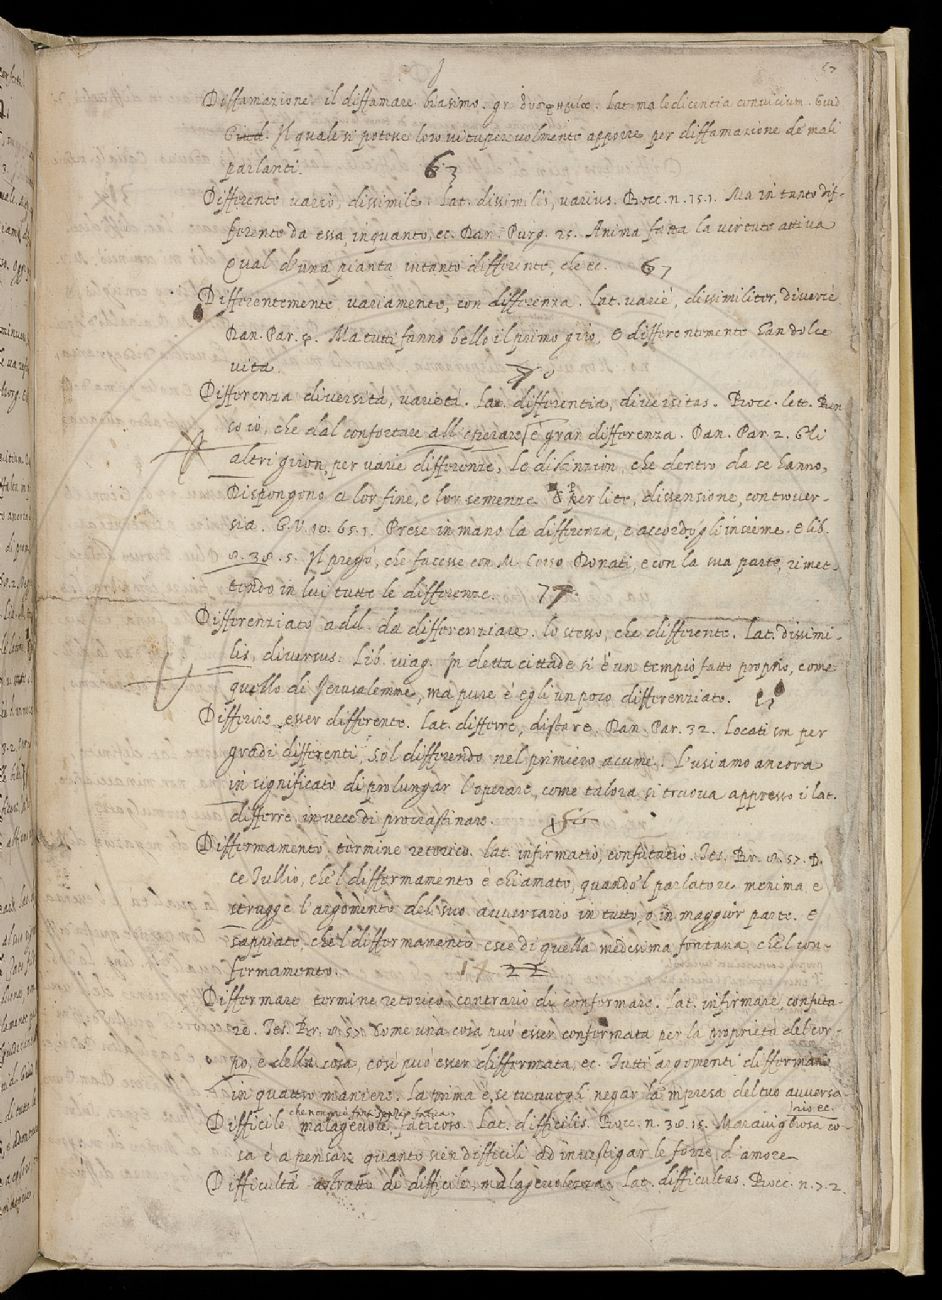 67
Diffamazione il diffamare biasimo. gr. δυσφημία. Lat. maledicentia convicium. Guid.
Guid. Il quale si potesse loro vituperevolmente apporre per diffamazione de mali
parlanti. 63
Differente vario, dissimile. Lat. dissimilis, varius. Bocc. n. 15. 1. Ma in tanto dif-
ferente da essa, in quanto, ec. Dan. Purg. 25. Anima fatta la virtute attiva
Qual d'una pianta in tanto differente, che ec. 67
Differentemente variamente, con differenza. Lat. varie, dissimiliter, diverse
Dan. Par. 4. Ma tutti fanno bello il primo giro, E differentemente han dolce
vita.
Differenza diversità, varietà. Lat. differentia, diversitas. Bocc. lett. Pin
Ro io, che dal confortare all'operare è gran differenza. Dan. Par. 2. Gli
altri giron, per varie differenze, Le distinzion, che dentro da se hanno,
Dispongono a lor fine, e lor semenze. § per lite, dissensione, controver-
sia. G. V. 10. 65. 1. Prese in mano la differenza, e accordogli insieme. E lib.
8. 38. 5. Il pregò, che facesse con M. Corso Donati, e con la sua parte, rimet-
tendo in lui tutte le differenze. 77
Differenziato add. da differenziare. lo stesso, che differente. Lat. dissimi-
lis, diversus. Lib. viag. In detta cittade si è un tempio fatto proprio, come
quello di Jerusalemme, ma pure è egli un poco differenziato.
Differire esser differente. Lat. differre, distare. Dan. Par. 32. Locati son per
gradi differenti, Sol differendo nel primiero acume. L'usiamo ancora
in significato di prolungar l'operare, come talora si truova appresso i lat.
differre, in vece di procrastinare.
Difformamento termine retorico. Lat. infirmatio, confutatio. Tes. Br. 8. 57. D-
ce Tullio, che'l difformamento è chiamato, quando'l parlatore menima e
strugge l'argomento del suo avversario in tutto, o in maggior parte. E
sappiate, che'l difformamento esce di quella medesima fontana, che'l con-
fermamento. 17 22
Difformare termine retorico, contrario di conformare. Lat. infirmare, confuta-
re. Tes. Br. 8. 57. Come una cosa può esser confirmata per la proprietà del cor-
po, e della cosa, così può esser difformata, ec. Tutti argomenti difformano
in quattro maniere. La prima è, se tu vuogli negar la impresa del tuo avversa-
rio ec.
che non può farsi senza fatica
Difficile malagevole faticoso. Lat. difficilis. Bocc. n. 38. 15. Maravigliosa co-
sa è a pensare quanto sien difficili ad investigar le forze d'amore
Difficultà astratto di difficile, malagevolezza. Lat. difficultas. Bocc. n. 7. 2.